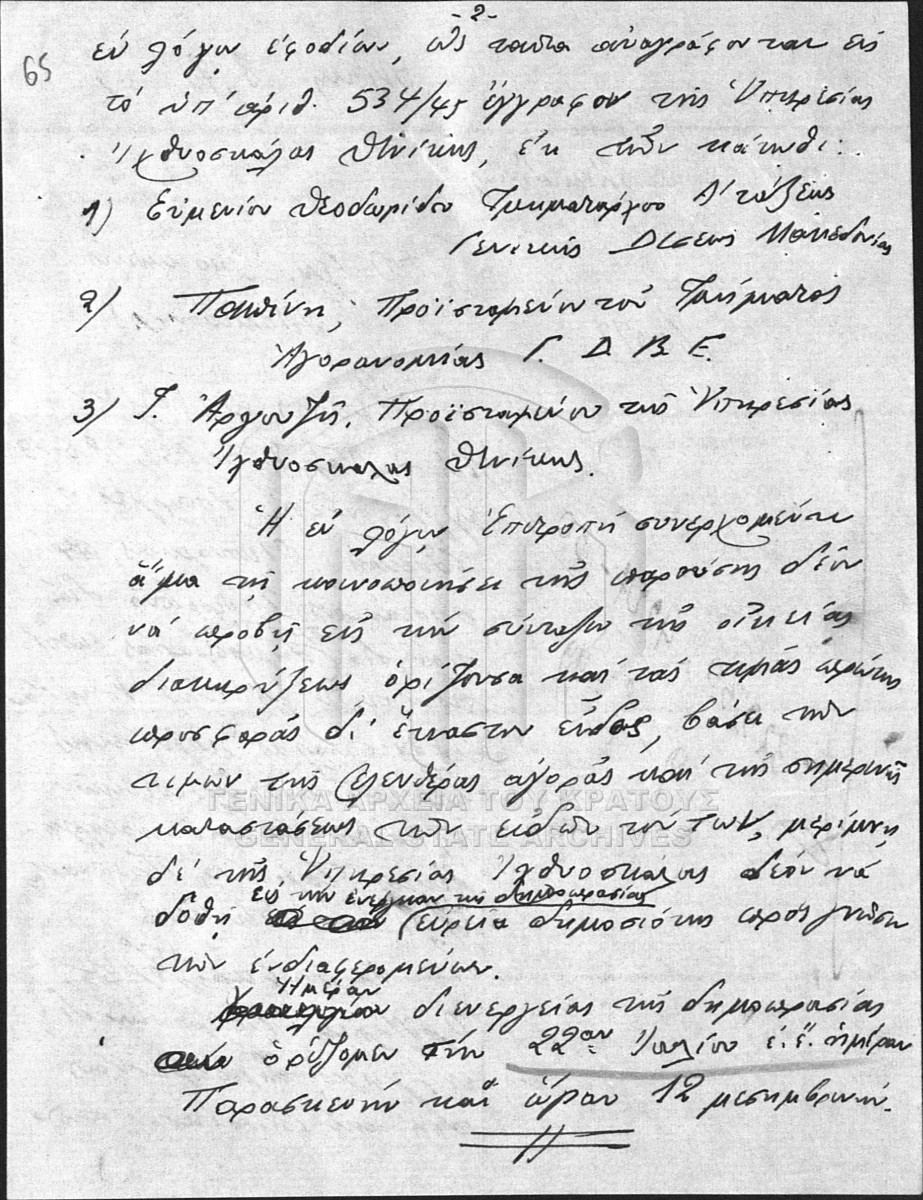 -2-
65
ἐν λόγῳ ἐφοδίων, ὡς ταῦτα ἀναγράφονται εἰς
τό ὑπ' ἀριθ. 534/45 ἔγγραφον τῆς Ὑπηρεσίας
Ἰχθυοσκάλας Θ/νίκης, ἐκ τῶν κάτωθι:
1) Εὐμενίου Θεοδωρίδου Τμηματάρχου Α' τάξεως
Γενικῆς Δ/σεως Μακεδονίας
2) Προϊσταμένου τοῦ Τμήματος
Ἀγορανομίας Γ. Δ. Β. Ε.
3) Γ. Ἀργουζῆ, Προϊσταμένου τῆς Ὑπηρεσίας
Ἰχθυοσκάλας Θ/νίκης.
Ἡ ἐν λόγῳ Ἐπιτροπή συνερχομένη
ἅμα τῇ κοινοποιήσει τῆς παρούσης δέον
νά προβῇ εἰς τήν σύνταξιν τῆς οἰκείας
διακηρύξεως ὁρίζουσα καί τάς τιμάς πρώτης
προσφορᾶς δι' ἕκαστον εἶδος, βάσει τῶν
τιμῶν τῆς ἐλευθέρας ἀγορᾶς καί τῆς σημερινῆς
καταστάσεως τῶν εἰδῶν τούτων, μερίμνῃ
δέ τῆς Ὑπηρεσίας Ἰχθυοσκάλας δέον νά
εἰς τήν ἐνέργειαν τῆς δημοπρασίας
δοθῇ εὐρεῖα δημοσιότης πρός γνῶσιν
τῶν ἐνδιαφερομένων.
Ἡμέραν
διενεργείας τῆς δημοπρασίας
ὁρίζομεν τήν 22αν Ἰουλίου ἐ.ἔ. ἡμέραν
Παρασκευήν καί ὥραν 12 μεσημβρινήν.
ΓΕΝΙΚΑ ΑΡΧΕΙΑ ΤΟΥ ΚΡΑΤΟΥΣ
GENERAL STATE ARCHIVES